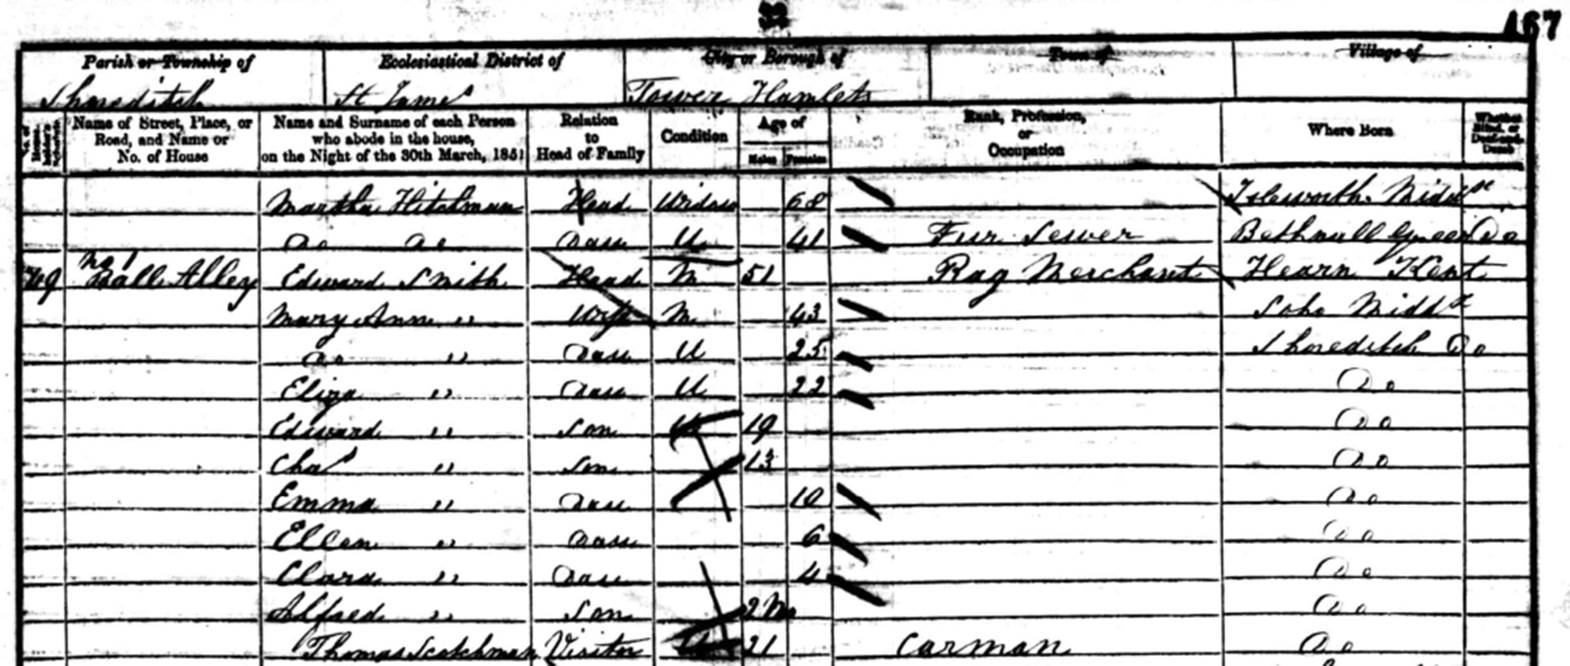 32
167
Parish or Township of Ecclesiastical District of City or Borough of Town of Village of
Shoreditch St James Tower Hamlets
Name of Street, Place, or Road, and Name or No. of House Name and Surname of each Person who abode in the house, on the Night of the 30th March, 1851 Relation to Head of Family Condition Age of Males Females Rank, Profession, or Occupation Where Born Whether Blind, or Deaf-and-Dumb
Martha Hitchman Head Widow 68 Isleworth Middx
Do Do Dau U 41 Fur Sewer Bethnall Green Do
No 1 Ball Alley Edward Smith Head M 51 Rag Merchant Hearn Kent
Mary Ann " Wife M 43 Soho Middx
Do " Dau U 25 Shoreditch Do
Eliza " Dau U 22 Do
Edward " Son U 19 Do
Chas " Son 13 Do
Emma " Dau 10 Do
Ellen " Dau 6 Do
Clara " Dau 4 Do
Alfred " Son 2 Mo Do
Thomas Scotchman Visitor U 21 Carman Do